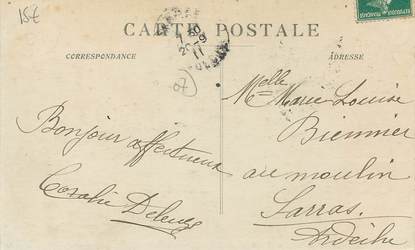 15€
CARTE POSTALE
CORRESPONDANCE
ADRESSE
20-9
11
Melle Marie Louise
Biennier
au moulin
Sarras.
Ardèche
Bonjour affectueux
Coralie Deleuze